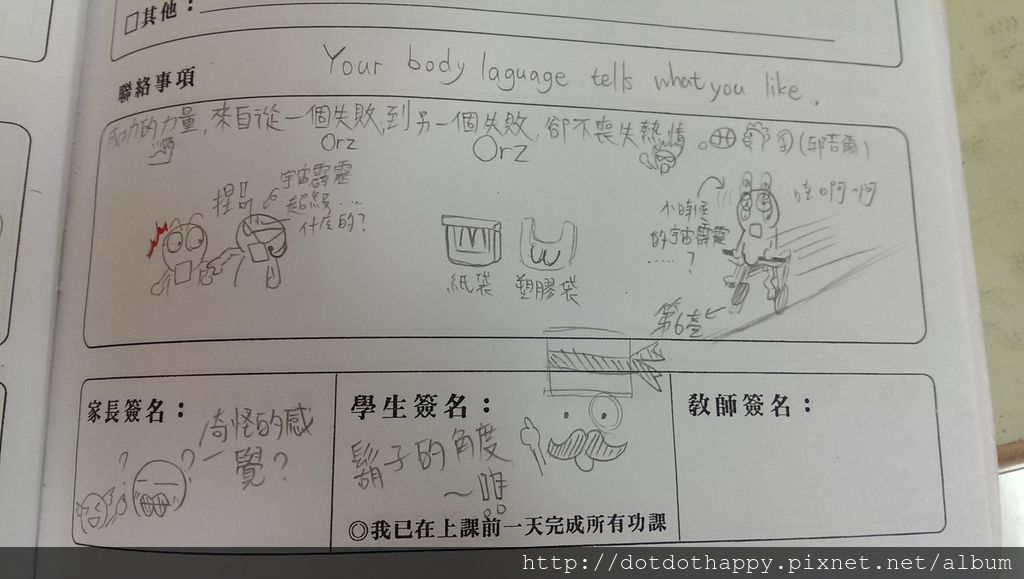 □其他：
Your body laguage tells what you like.
聯絡事項
成功的力量,來自從一個失敗,到另一個失敗,卻不喪失熱情。(邱吉爾)
Orz
Orz
捏!!
宇宙霹靂
超級……
什麼的?
紙袋
塑膠袋
小時候
的宇宙霹靂
……?
哇啊啊
第6
家長簽名：
奇怪的感
覺?
學生簽名：
鬍子的角度
教師簽名：
◎我已在上課前一天完成所有功課
http://dotdothappy.pixnet.net/album